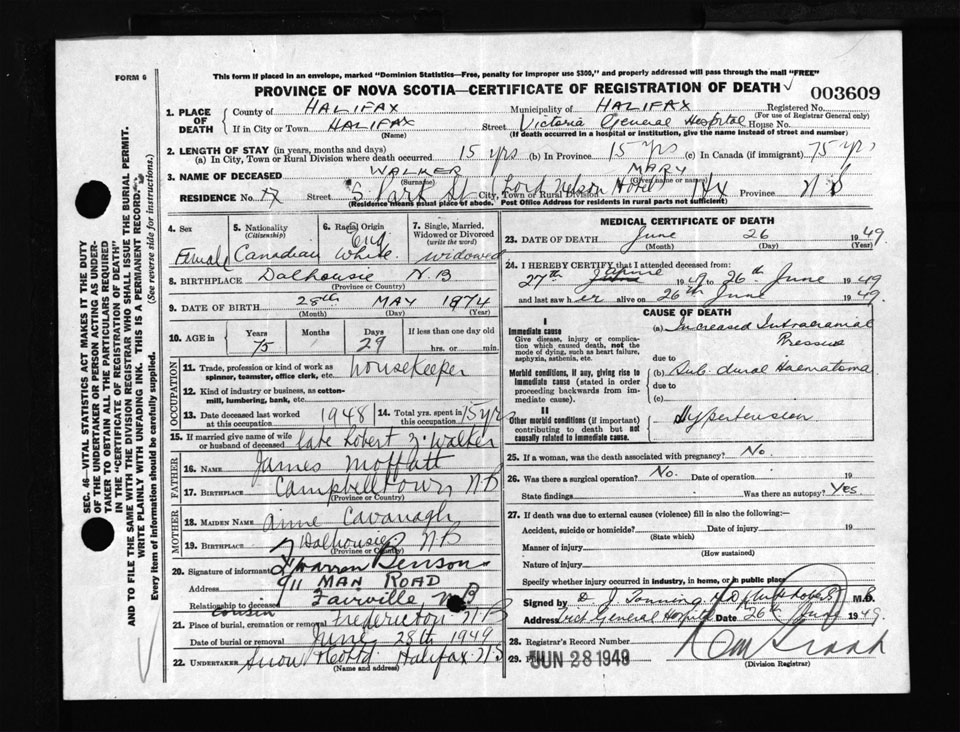 FORM 6
This form if placed in an envelope, marked "Dominion Statistics—Free, penalty for improper use $300," and properly addressed will pass through the mail "FREE"
PROVINCE OF NOVA SCOTIA—CERTIFICATE OF REGISTRATION OF DEATH
003609
1. PLACE OF DEATH
County of HALIFAX
Municipality of HALIFAX
Registered No.
(For use of Registrar General only)
If in City or Town HALIFAX
(Name)
Street Victoria General Hospital House No.
(If death occurred in a hospital or institution, give the name instead of street and number)
2. LENGTH OF STAY (in years, months and days)
(a) In City, Town or Rural Division where death occurred 15 yrs (b) In Province 15 yrs (c) In Canada (if immigrant) 75 yrs
3. NAME OF DECEASED WALKER MARY
(Surname) (Given name or names)
RESIDENCE No. Street S Park St City, Town or Rural Division Lord Nelson Hotel Hfx Province N S
(Residence means usual place of abode. Post Office Address for residents in rural parts not sufficient)
4. Sex
Female
5. Nationality
(Citizenship)
Canadian
6. Racial Origin
Eng
White
7. Single, Married, Widowed or Divorced
(write the word)
widowed
8. BIRTHPLACE Dalhousie N.B
(Province or Country)
9. DATE OF BIRTH 28th MAY 1874
(Month) (Day) (Year)
10. AGE in
Years Months Days If less than one day old
75 29 hrs. or min.
OCCUPATION
11. Trade, profession or kind of work as spinner, teamster, office clerk, etc. housekeeper
12. Kind of industry or business, as cotton-mill, lumbering, bank, etc.
13. Date deceased last worked at this occupation 1948
14. Total yrs. spent in this occupation 15 yrs
15. If married give name of wife or husband of deceased late Robert Walker
FATHER
16. NAME James Moffatt
17. BIRTHPLACE Campbelltown N B
(Province or Country)
MOTHER
18. MAIDEN NAME Anne Cavanagh
19. BIRTHPLACE Dalhousie N B
(Province or Country)
20. Signature of informant Warren Benson
Address 911 MAN ROAD
Fairville N B
Relationship to deceased cousin
21. Place of burial, cremation or removal Fredericton N B
Date of burial or removal June 28th 1949
22. UNDERTAKER Snow Halifax N.S
(Name and address)
MEDICAL CERTIFICATE OF DEATH
23. DATE OF DEATH June 26 1949
(Month) (Day) (Year)
24. I HEREBY CERTIFY that I attended deceased from:
27th 1949 to 26th June 1949
and last saw her alive on 26th June 1949.
CAUSE OF DEATH
I
Immediate cause
Give disease, injury or complication which caused death, not the mode of dying, such as heart failure, asphyxia, asthenia, etc.
(a) Increased Intracranial Pressure
due to
Morbid conditions, if any, giving rise to immediate cause (stated in order proceeding backwards from immediate cause).
(b) Sub. dural Haematoma
due to
(c)
II
Other morbid conditions (if important) contributing to death but not causally related to immediate cause.
Hypertension
25. If a woman, was the death associated with pregnancy? No.
26. Was there a surgical operation? No. Date of operation 19
State findings Was there an autopsy? Yes
27. If death was due to external causes (violence) fill in also the following:—
Accident, suicide or homicide? Date of injury 19
(State which)
Manner of injury
(How sustained)
Nature of injury
Specify whether injury occurred in industry, in home, or in public place
Signed by D. J. Tonning M.D.
Address Vict General Hospital Date 26th June 1949
28. Registrar's Record Number
29.
JUN 28 1949
(Division Registrar)
SEC. 46—VITAL STATISTICS ACT MAKES IT THE DUTY OF THE UNDERTAKER OR PERSON ACTING AS UNDERTAKER TO OBTAIN ALL THE PARTICULARS REQUIRED IN THE "CERTIFICATE OF REGISTRATION OF DEATH" AND TO FILE THE SAME WITH THE DIVISION REGISTRAR WHO SHALL ISSUE THE BURIAL PERMIT.
WRITE PLAINLY WITH UNFADING INK. THIS IS A PERMANENT RECORD.
Every item of information should be carefully supplied. (See reverse side for instructions.)